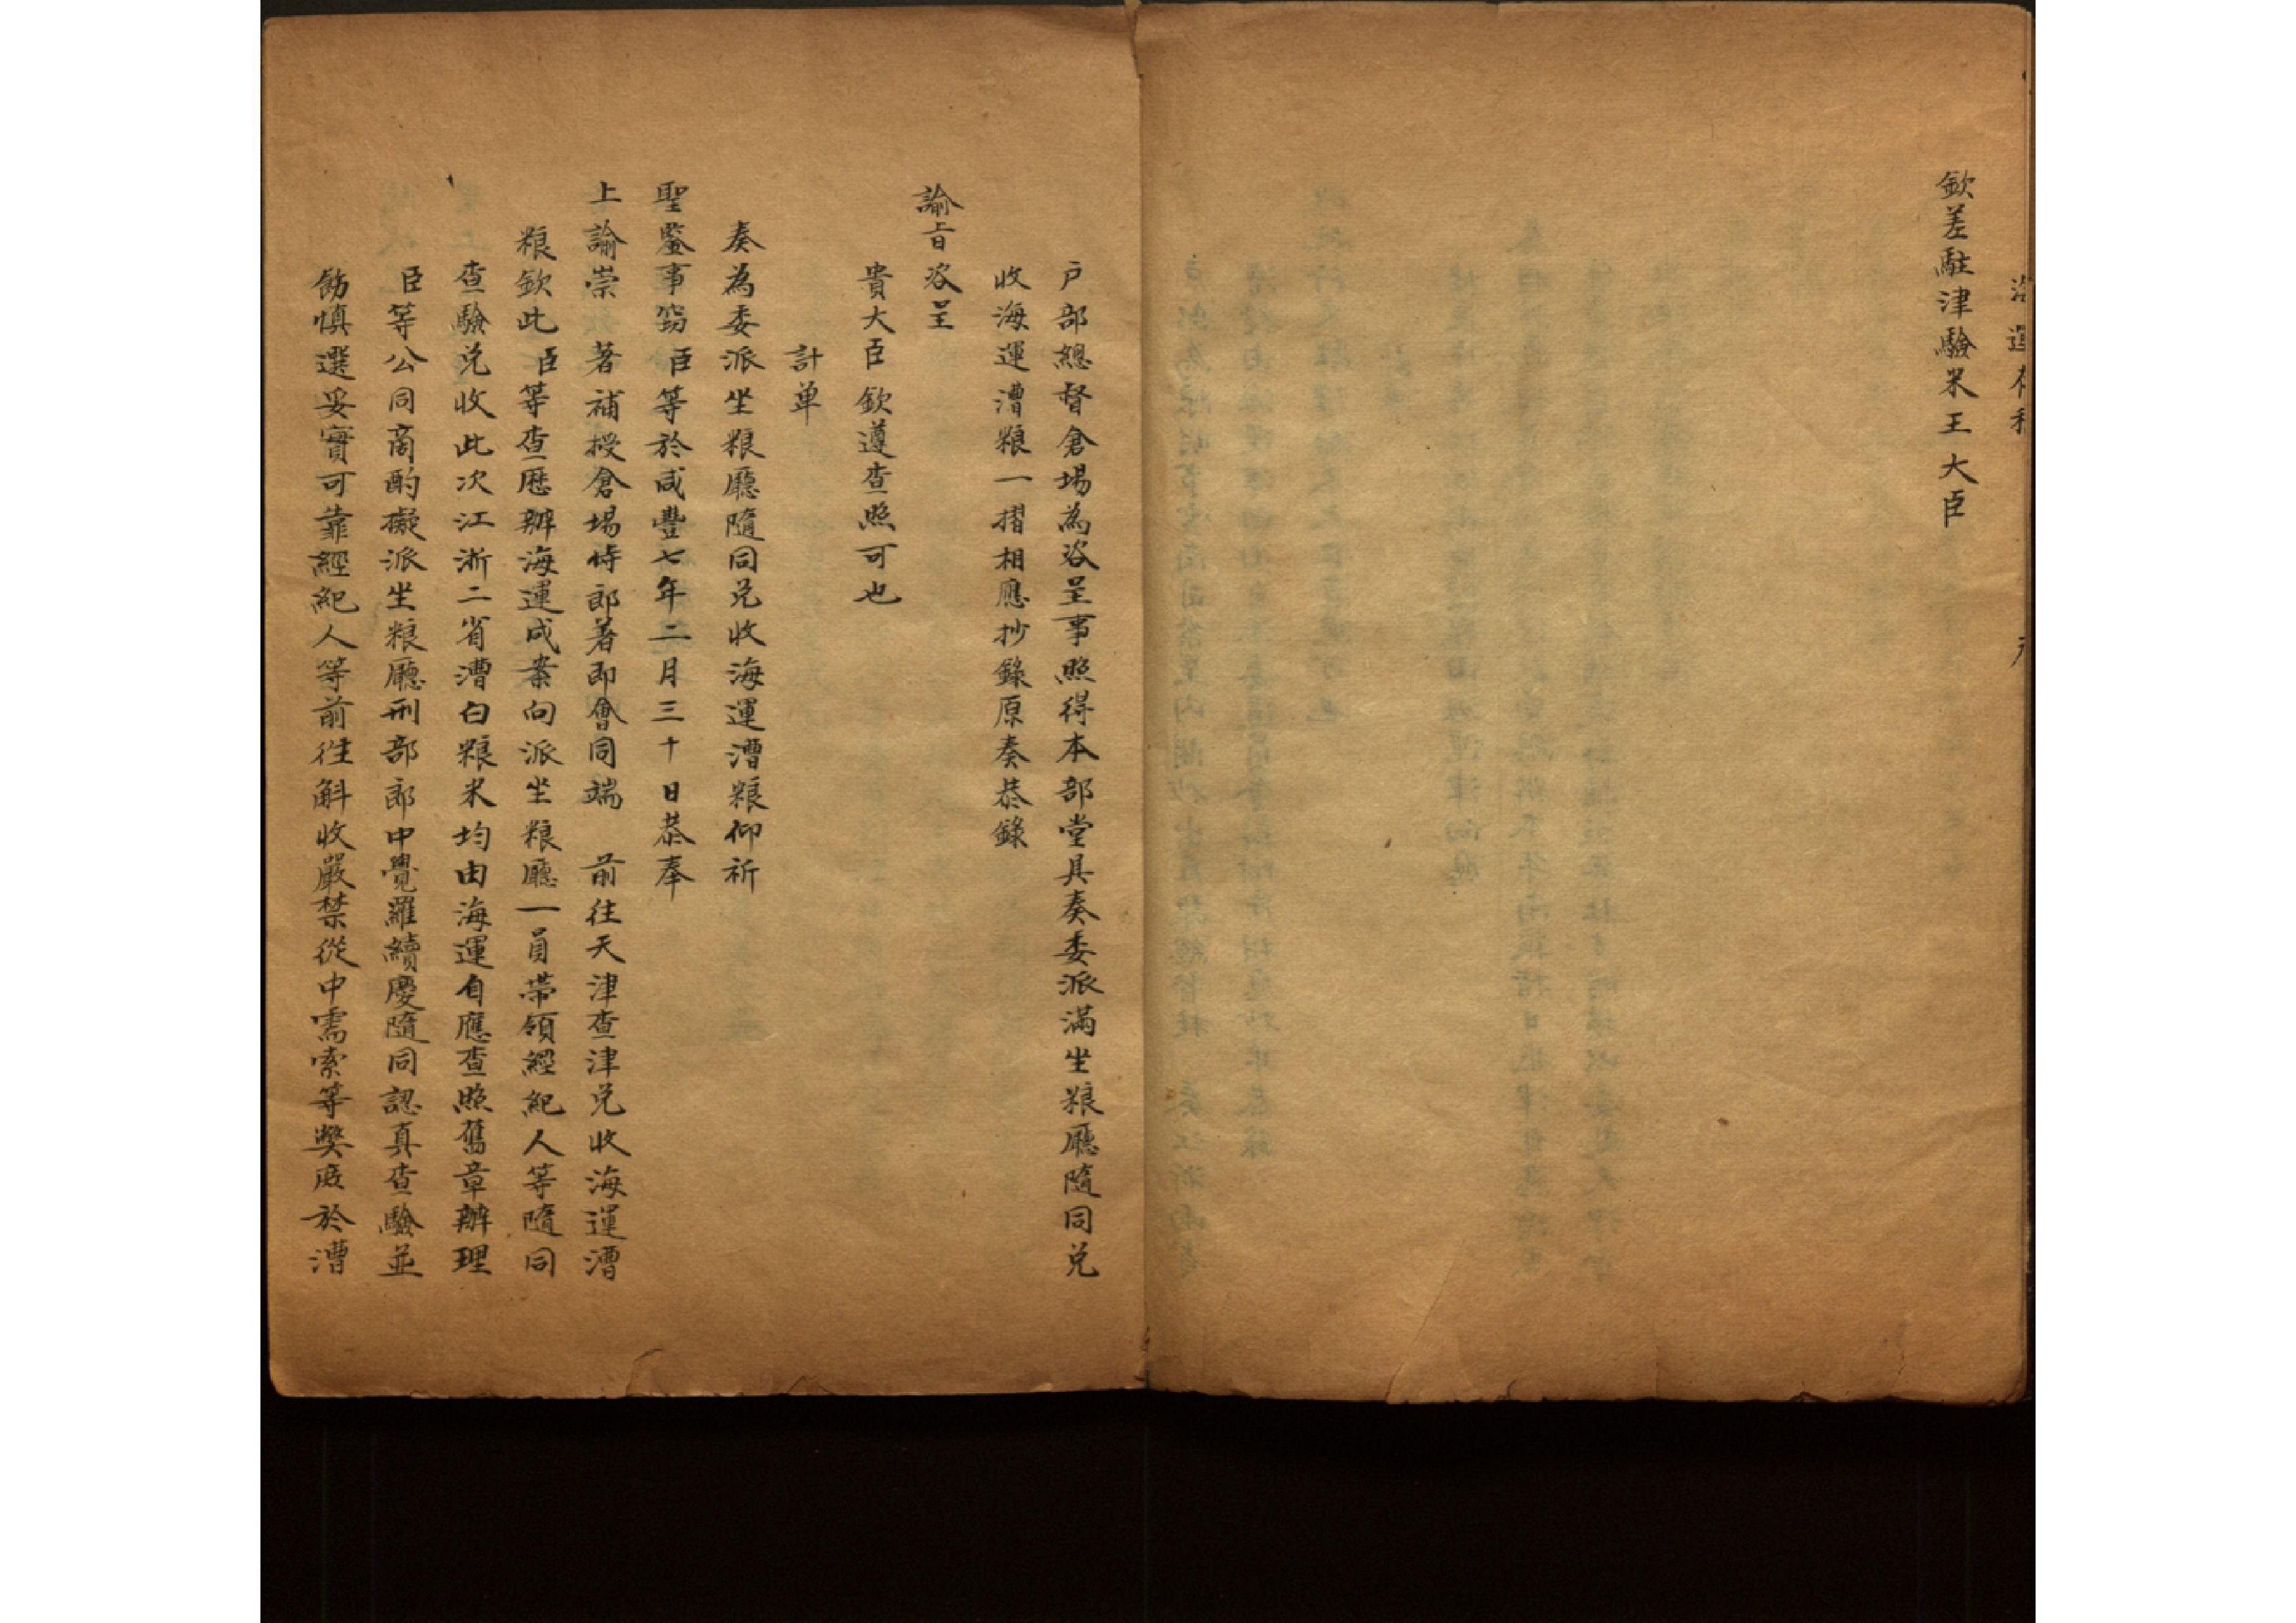 海運
欽差駐津驗米王大臣
戶部總督倉場為咨呈事照得本部堂具奏委派滿坐粮廳隨同兌
收海運漕粮一摺相應抄錄原奏恭錄
諭旨咨呈
貴大臣欽遵查照可也
計单
奏為委派坐粮廳隨同兌收海運漕粮仰祈
聖鑒事窃臣等於咸豐七年二月三十日恭奉
上諭崇著補授倉場侍郎著即會同端 前往天津查津兌收海運漕
粮欽此臣等查歷辦海運成案向派坐粮廳一員帶領經紀人等隨同
查驗兌收此次江浙二省漕白粮米均由海運自應查照舊章辦理
臣等公同商酌擬派坐粮廳刑部郎中覺羅續慶隨同認真查驗並
飭慎選妥實可靠經紀人等前往斛收嚴禁從中需索等獘庶於漕